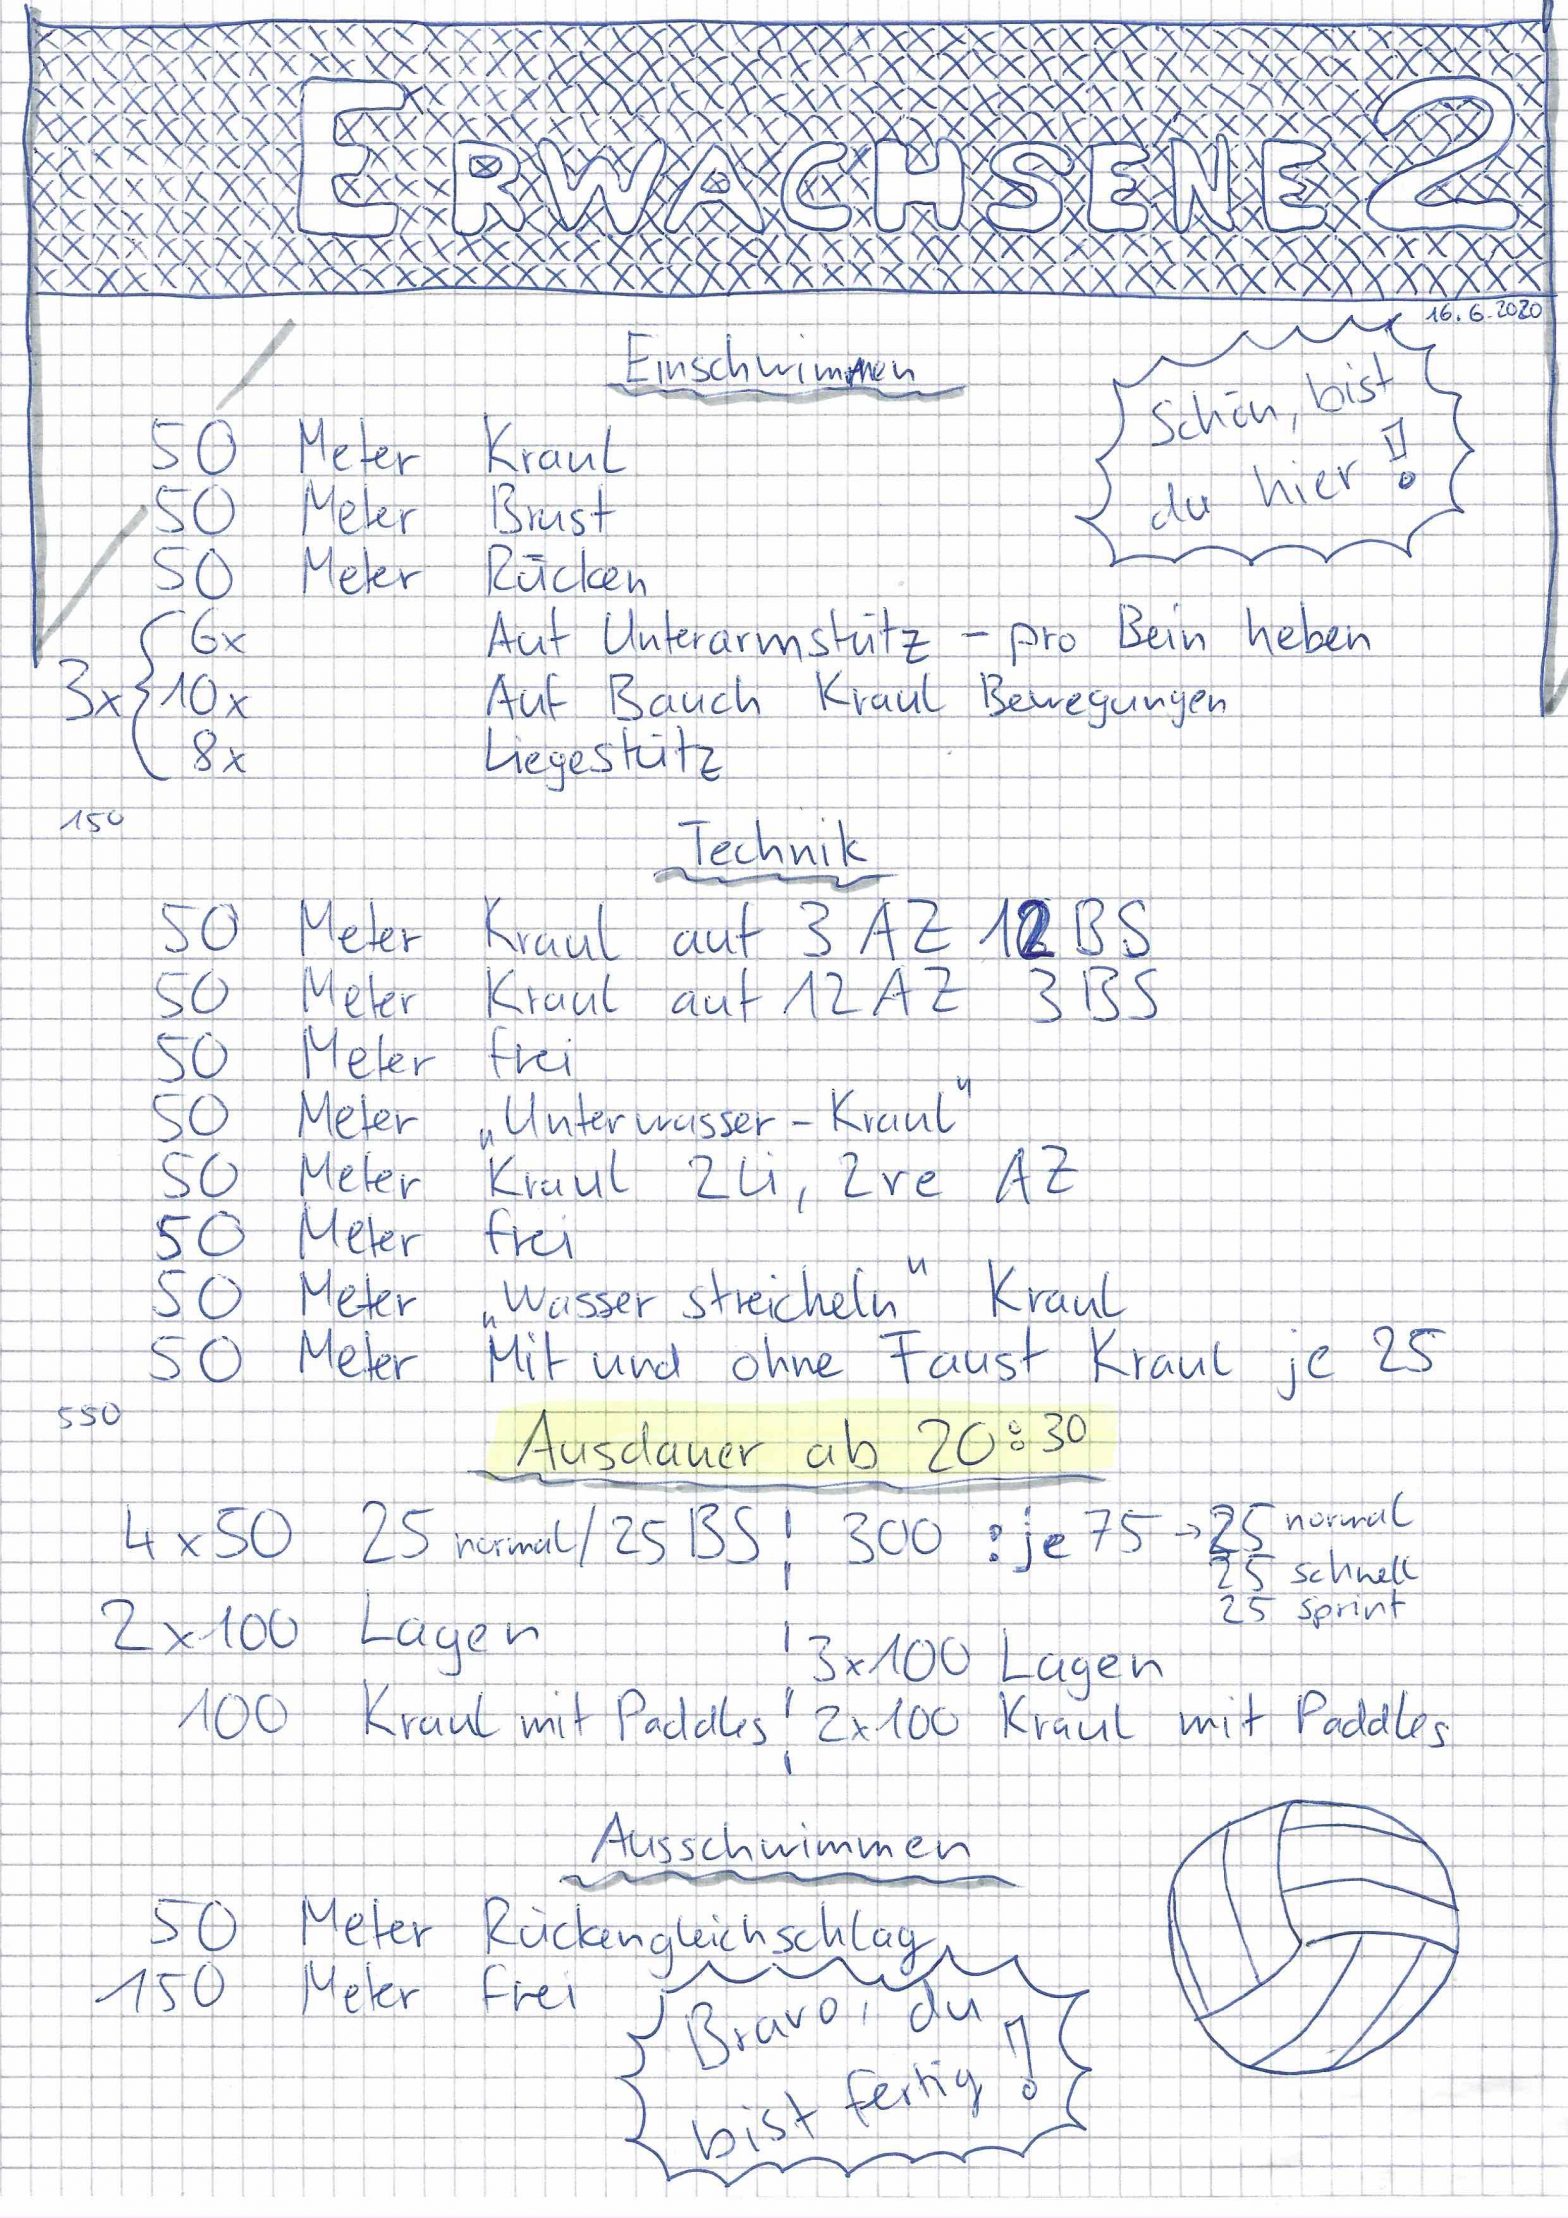 ERWACHSENE 2
16.6.2020
Einschwimmen
Schön, bist
du hier!
50 Meter Kraul
50 Meter Brust
50 Meter Rücken
3x { 6x Auf Unterarmstütz - pro Bein heben
10x Auf Bauch Kraul Bewegungen
8x Liegestütz
150
Technik
50 Meter Kraul auf 3 AZ 12 BS
50 Meter Kraul auf 12 AZ 3 BS
50 Meter frei
50 Meter „Unterwasser-Kraul"
50 Meter Kraul 2li, 2re AZ
50 Meter frei
50 Meter „Wasser streicheln" Kraul
50 Meter Mit und ohne Faust Kraul je 25
550
Ausdauer ab 20:30
4x50 25 normal/25 BS
2x100 Lagen
100 Kraul mit Paddles
300 : je 75 → 25 normal
25 schnell
25 sprint
3x100 Lagen
2x100 Kraul mit Paddles
Ausschwimmen
50 Meter Rückengleichschlag
150 Meter frei
Bravo, du
bist fertig!